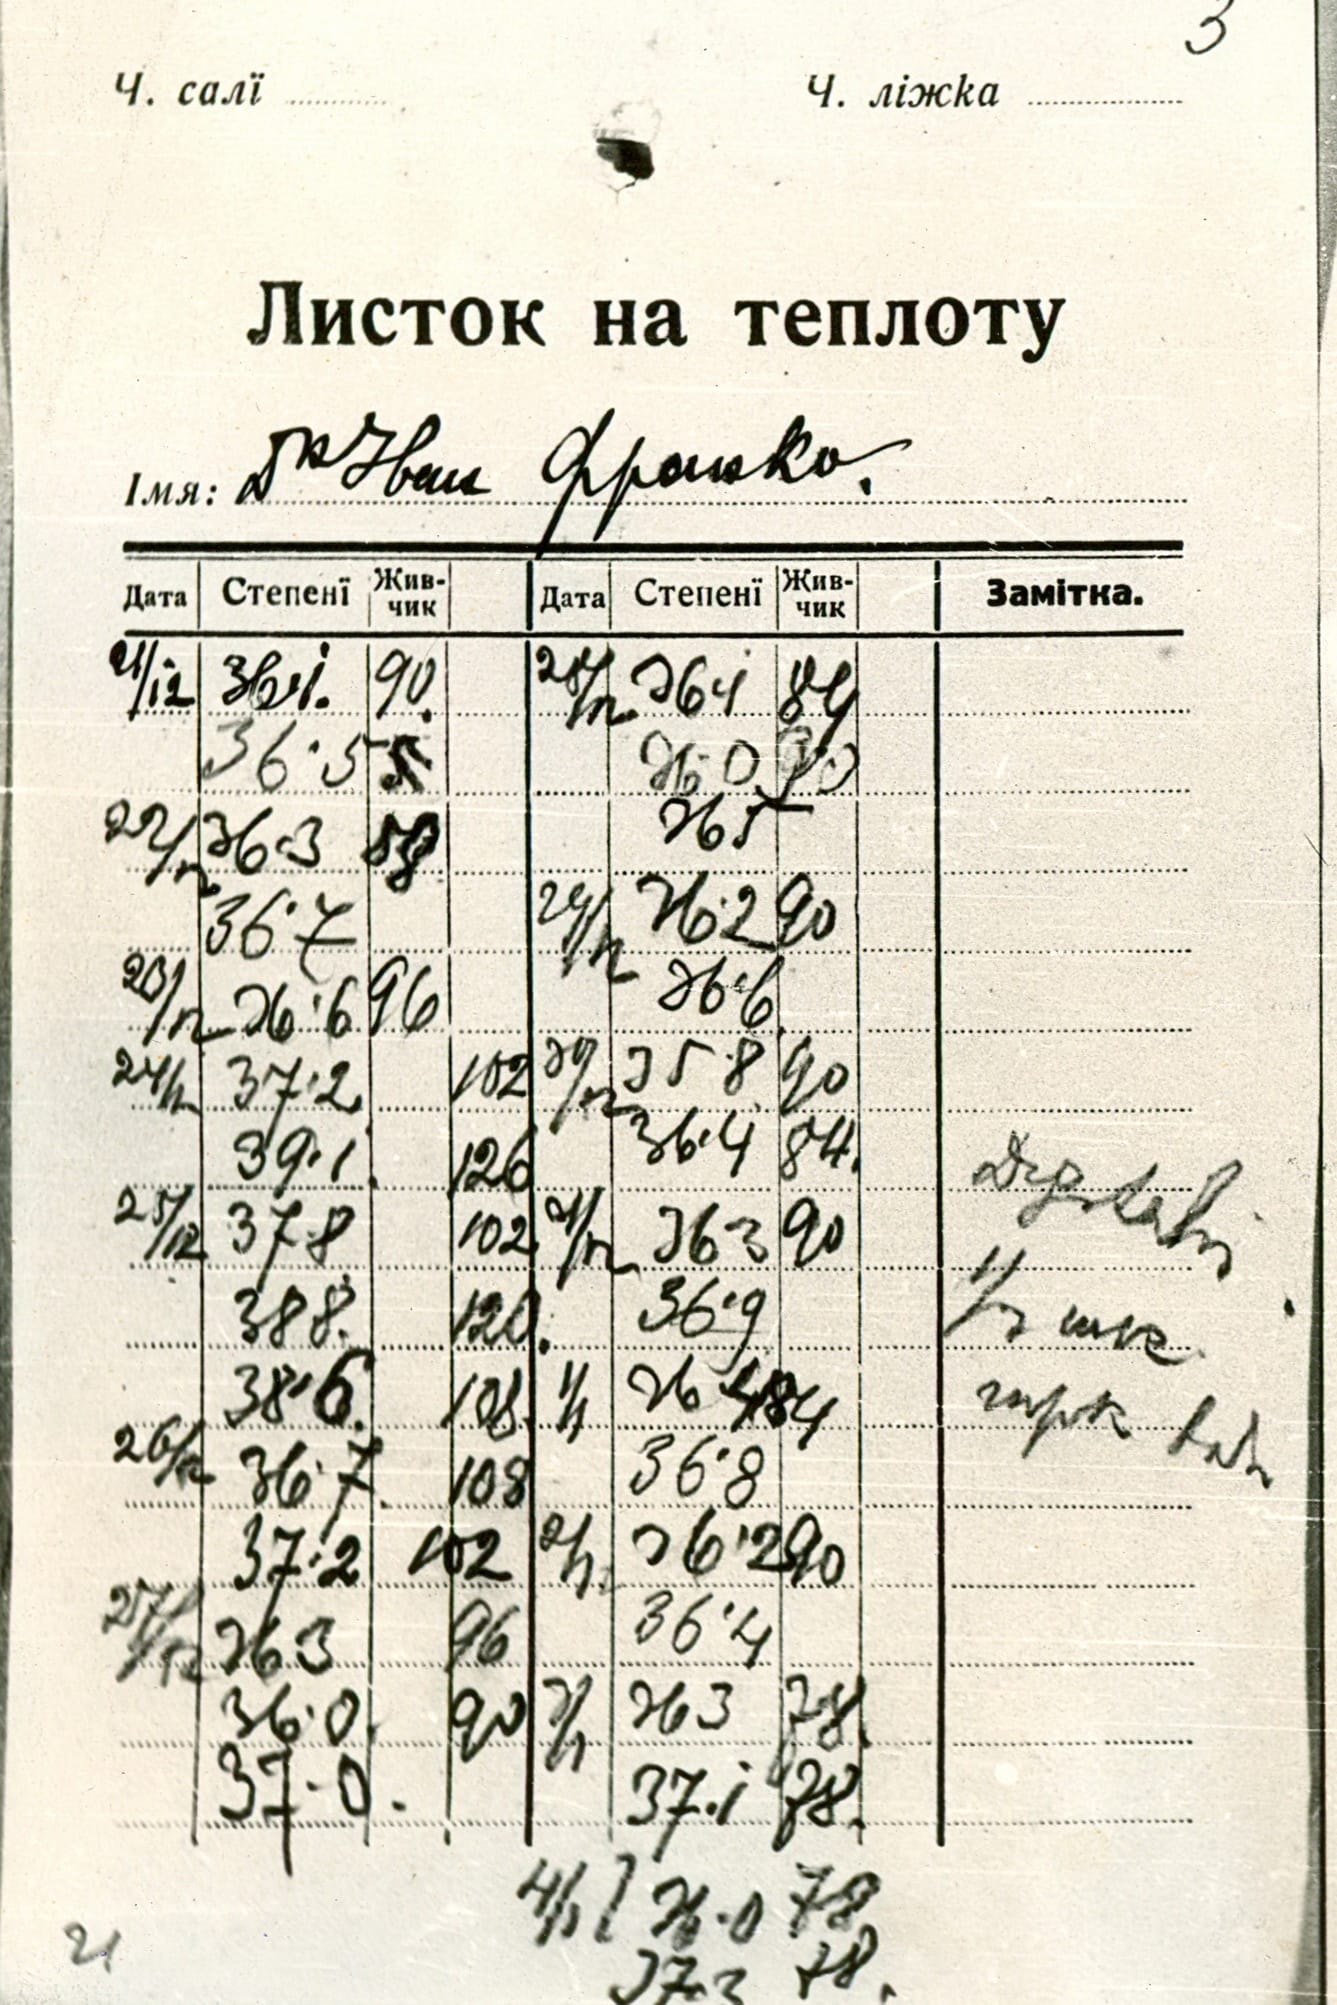 3
Ч. салї ............ Ч. ліжка ............
Листок на теплоту
Імя: Др Іван Франко.
Дата Степенї Жив-чик Дата Степенї Жив-чик Замітка.
21/12 36·1. 90. 28/12 36 1 84
36·5 36·0 90
22/12 36·3 36 5
36·7 29/12 36·2 90
23/12 36·6 96 36·6
24/12 37·2 102 30/12 35 8 90
39·1 126 36·4 84.
25/12 37 8 102 31/12 36 3 90
38 8. 120. 36·9
38·6. 108. 1/1 36 4 84
26/12 36·7 108 36·8
37·2 102 2/1 36·2 90
27/12 36 3 96 36·4
36·0. 90 3/1 36 3 78.
37·0. 37·1 78.
4/1 36·0 78
37·3 78.
21